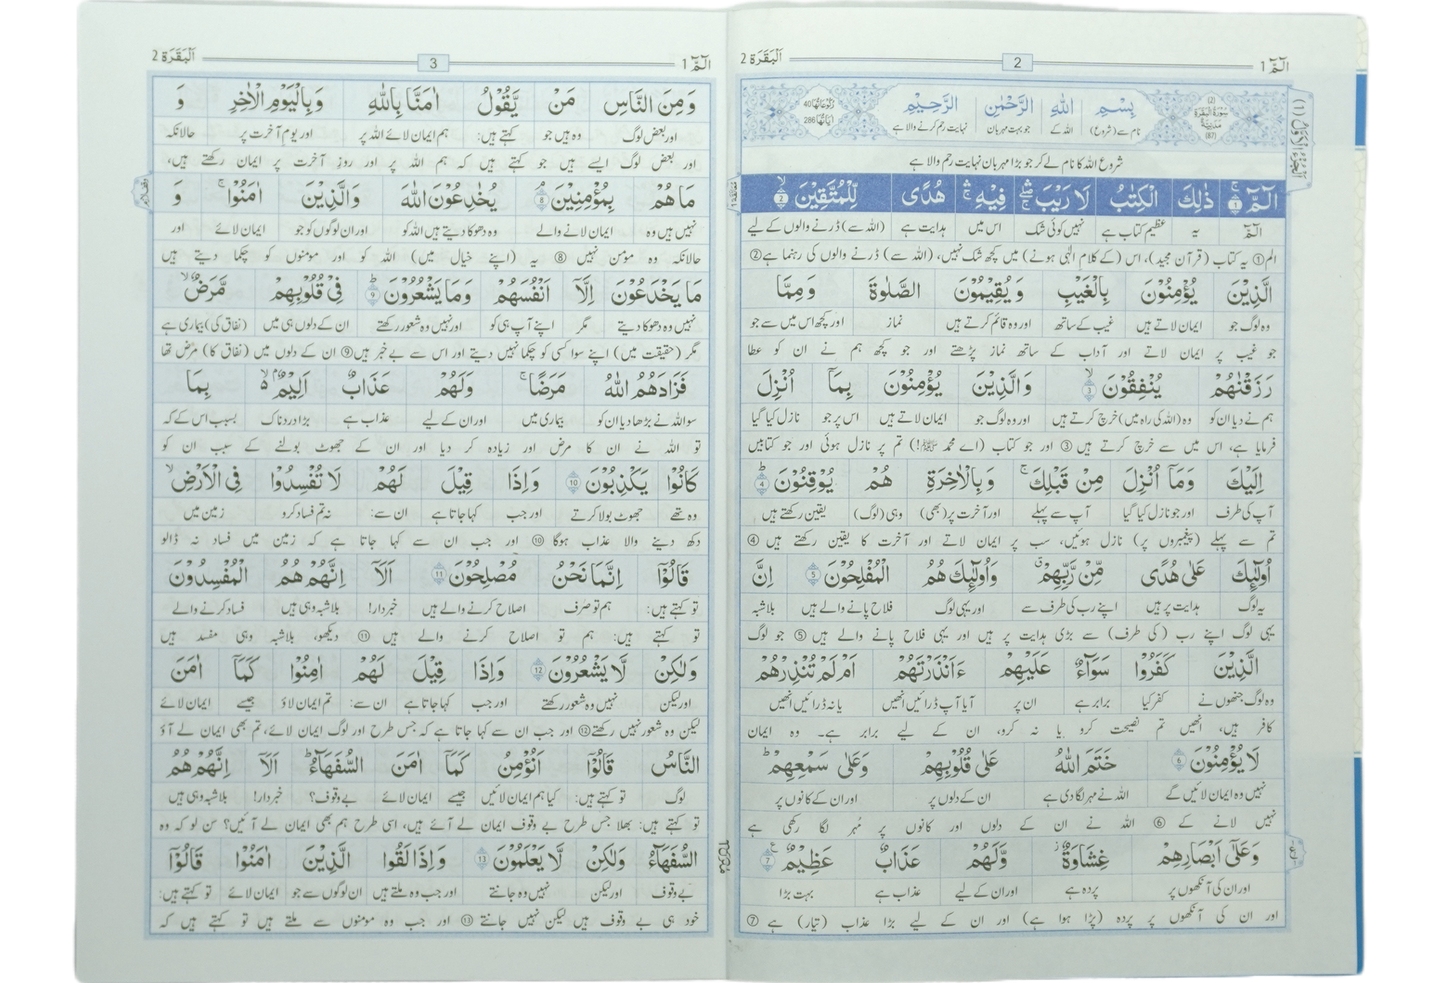 الٓمّٓ 1
2
اَلْبَقَرَة 2
(2) سُوْرَةُ الْبَقَرَةِ مَدَنِيَّةٌ (87)
بِسْمِ اللّٰهِ الرَّحْمٰنِ الرَّحِيْمِ
رُكُوْعَاتُهَا 40 اٰيَاتُهَا 286
نام سے (شروع) اللہ کے جو بہت مہربان نہایت رحم کرنے والا ہے
شروع اللہ کا نام لے کر جو بڑا مہربان نہایت رحم والا ہے
الٓمّٓ ۚ ۱ ذٰلِكَ الْكِتٰبُ لَا رَيْبَ ۛ فِيْهِ ۛ هُدًى لِّلْمُتَّقِيْنَ ۙ ۲
الٓمّٓ یہ عظیم کتاب ہے نہیں کوئی شک اس میں ہدایت ہے (اللہ سے) ڈرنے والوں کے لیے
الم ① یہ کتاب (قرآن مجید)، اس (کے کلام الٰہی ہونے) میں کچھ شک نہیں، (اللہ سے) ڈرنے والوں کی رہنما ہے ②
الَّذِيْنَ يُؤْمِنُوْنَ بِالْغَيْبِ وَ يُقِيْمُوْنَ الصَّلٰوةَ وَ مِمَّا
وہ لوگ جو ایمان لاتے ہیں غیب کے ساتھ اور وہ قائم کرتے ہیں نماز اور کچھ اس میں سے جو
جو غیب پر ایمان لاتے اور آداب کے ساتھ نماز پڑھتے اور جو کچھ ہم نے ان کو عطا
رَزَقْنٰهُمْ يُنْفِقُوْنَ ۙ ۳ وَ الَّذِيْنَ يُؤْمِنُوْنَ بِمَاۤ اُنْزِلَ
ہم نے دیا ان کو وہ (اللہ کی راہ میں) خرچ کرتے ہیں اور وہ لوگ جو ایمان لاتے ہیں اس پر جو نازل کیا گیا
فرمایا ہے، اس میں سے خرچ کرتے ہیں ③ اور جو کتاب (اے محمد ﷺ!) تم پر نازل ہوئی اور جو کتابیں
اِلَيْكَ وَمَاۤ اُنْزِلَ مِنْ قَبْلِكَ ۚ وَ بِالْاٰخِرَةِ هُمْ يُوْقِنُوْنَ ؕ ۴
آپ کی طرف اور جو نازل کیا گیا آپ سے پہلے اور آخرت پر (بھی) وہی (لوگ) یقین رکھتے ہیں
تم سے پہلے (پیغمبروں پر) نازل ہوئیں، سب پر ایمان لاتے اور آخرت کا یقین رکھتے ہیں ④
اُولٰٓئِكَ عَلٰى هُدًى مِّنْ رَّبِّهِمْ ۗ وَاُولٰٓئِكَ هُمُ الْمُفْلِحُوْنَ ۵ اِنَّ
یہ لوگ ہدایت پر ہیں اپنے رب کی طرف سے اور یہی لوگ فلاح پانے والے ہیں بلاشبہ
یہی لوگ اپنے رب (کی طرف) سے بڑی ہدایت پر ہیں اور یہی فلاح پانے والے ہیں ⑤ جو لوگ
الَّذِيْنَ كَفَرُوْا سَوَآءٌ عَلَيْهِمْ ءَاَنْذَرْتَهُمْ اَمْ لَمْ تُنْذِرْهُمْ
وہ لوگ جنھوں نے کفر کیا برابر ہے ان پر آیا آپ ڈرائیں انھیں یا نہ ڈرائیں انھیں
کافر ہیں، انھیں تم نصیحت کرو یا نہ کرو، ان کے لیے برابر ہے۔ وہ ایمان
لَا يُؤْمِنُوْنَ ۶ خَتَمَ اللّٰهُ عَلٰى قُلُوْبِهِمْ وَعَلٰى سَمْعِهِمْ ؕ
نہیں وہ ایمان لائیں گے اللہ نے مہر لگا دی ہے ان کے دلوں پر اور ان کے کانوں پر
نہیں لانے کے ⑥ اللہ نے ان کے دلوں اور کانوں پر مُہر لگا رکھی ہے
وَعَلٰٓى اَبْصَارِهِمْ غِشَاوَةٌ ؗ وَّلَهُمْ عَذَابٌ عَظِيْمٌ ۷
اور ان کی آنکھوں پر پردہ ہے اور ان کے لیے عذاب ہے بہت بڑا
اور ان کی آنکھوں پر پردہ (پڑا ہوا ہے) اور ان کے لیے بڑا عذاب (تیار) ہے ⑦
الٓمّٓ 1
3
اَلْبَقَرَة 2
وَ مِنَ النَّاسِ مَنْ يَّقُوْلُ اٰمَنَّا بِاللّٰهِ وَ بِالْيَوْمِ الْاٰخِرِ وَ
اور بعض لوگ وہ ہیں جو کہتے ہیں: ہم ایمان لائے اللہ پر اور یوم آخرت پر حالانکہ
اور بعض لوگ ایسے ہیں جو کہتے ہیں کہ ہم اللہ پر اور روزِ آخرت پر ایمان رکھتے ہیں،
مَا هُمْ بِمُؤْمِنِيْنَ ۘ ۸ يُخٰدِعُوْنَ اللّٰهَ وَالَّذِيْنَ اٰمَنُوْا ۚ وَ
نہیں ہیں وہ ایمان لانے والے وہ دھوکا دیتے ہیں اللہ کو اور ان لوگوں کو جو ایمان لائے اور
حالانکہ وہ مؤمن نہیں ⑧ یہ (اپنے خیال میں) اللہ کو اور مومنوں کو چکما دیتے ہیں
مَا يَخْدَعُوْنَ اِلَّاۤ اَنْفُسَهُمْ وَمَا يَشْعُرُوْنَ ؕ ۹ فِيْ قُلُوْبِهِمْ مَّرَضٌ ۙ
نہیں وہ دھوکا دیتے مگر اپنے آپ ہی کو اور نہیں وہ شعور رکھتے ان کے دلوں ہی میں (نفاق کی) بیماری ہے
مگر (حقیقت میں) اپنے سوا کسی کو چکما نہیں دیتے اور اس سے بے خبر ہیں ⑨ ان کے دلوں میں (نفاق کا) مرض تھا
فَزَادَهُمُ اللّٰهُ مَرَضًا ۚ وَلَهُمْ عَذَابٌ اَلِيْمٌۢ ۙ بِمَا
سو اللہ نے بڑھا دیا ان کو بیماری میں اور ان کے لیے عذاب ہے بڑا دردناک بسبب اس کے کہ
تو اللہ نے ان کا مرض اور زیادہ کر دیا اور ان کے جھوٹ بولنے کے سبب ان کو
كَانُوْا يَكْذِبُوْنَ ۱۰ وَ اِذَا قِيْلَ لَهُمْ لَا تُفْسِدُوْا فِى الْاَرْضِ ۙ
وہ تھے جھوٹ بولا کرتے اور جب کہا جاتا ہے ان سے: نہ تم فساد کرو زمین میں
دکھ دینے والا عذاب ہوگا ⑩ اور جب ان سے کہا جاتا ہے کہ زمین میں فساد نہ ڈالو
قَالُوْۤا اِنَّمَا نَحْنُ مُصْلِحُوْنَ ۱۱ اَلَاۤ اِنَّهُمْ هُمُ الْمُفْسِدُوْنَ
تو کہتے ہیں: ہم تو صرف اصلاح کرنے والے ہیں خبردار! بلاشبہ وہی ہیں فساد کرنے والے
تو کہتے ہیں: ہم تو اصلاح کرنے والے ہیں ⑪ دیکھو، بلاشبہ وہی مفسد ہیں
وَلٰكِنْ لَّا يَشْعُرُوْنَ ۱۲ وَ اِذَا قِيْلَ لَهُمْ اٰمِنُوْا كَمَاۤ اٰمَنَ
اور لیکن نہیں وہ شعور رکھتے اور جب کہا جاتا ہے ان سے: تم ایمان لاؤ جیسے ایمان لائے
لیکن وہ شعور نہیں رکھتے ⑫ اور جب ان سے کہا جاتا ہے کہ جس طرح اور لوگ ایمان لائے، تم بھی ایمان لے آؤ
النَّاسُ قَالُوْۤا اَنُؤْمِنُ كَمَاۤ اٰمَنَ السُّفَهَآءُ ؕ اَلَاۤ اِنَّهُمْ هُمُ
لوگ تو کہتے ہیں: کیا ہم ایمان لائیں جیسے ایمان لائے بے وقوف؟ خبردار! بلاشبہ وہی ہیں
تو کہتے ہیں: بھلا جس طرح بے وقوف ایمان لے آئے ہیں، اسی طرح ہم بھی ایمان لے آئیں؟ سن لو کہ وہ
السُّفَهَآءُ وَلٰكِنْ لَّا يَعْلَمُوْنَ ۱۳ وَ اِذَا لَقُوا الَّذِيْنَ اٰمَنُوْا قَالُوْۤا
بے وقوف اور لیکن نہیں وہ جانتے اور جب وہ ملتے ہیں ان لوگوں سے جو ایمان لائے تو کہتے ہیں:
خود ہی بے وقوف ہیں لیکن نہیں جانتے ⑬ اور جب وہ مومنوں سے ملتے ہیں تو کہتے ہیں کہ